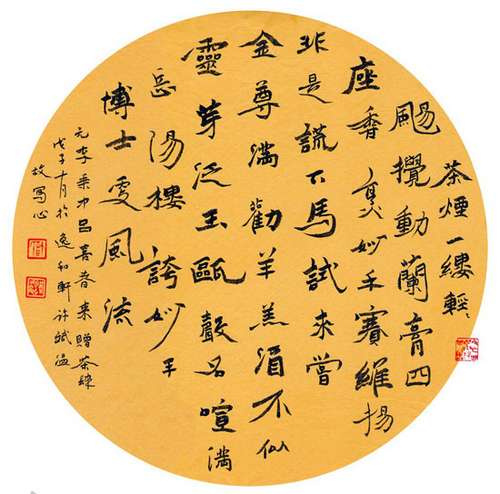 茶煙一縷輕〻
颺攪動蘭膏四
座香烹妙手賽維揚
非是謊下馬試來嘗
金尊滿勸羊羔酒不似
靈芽泛玉甌聲名喧滿
岳陽樓誇妙手
博士更風流
元李乘中呂喜春來贈茶肆
戊子十月於逸和軒許
故寫心